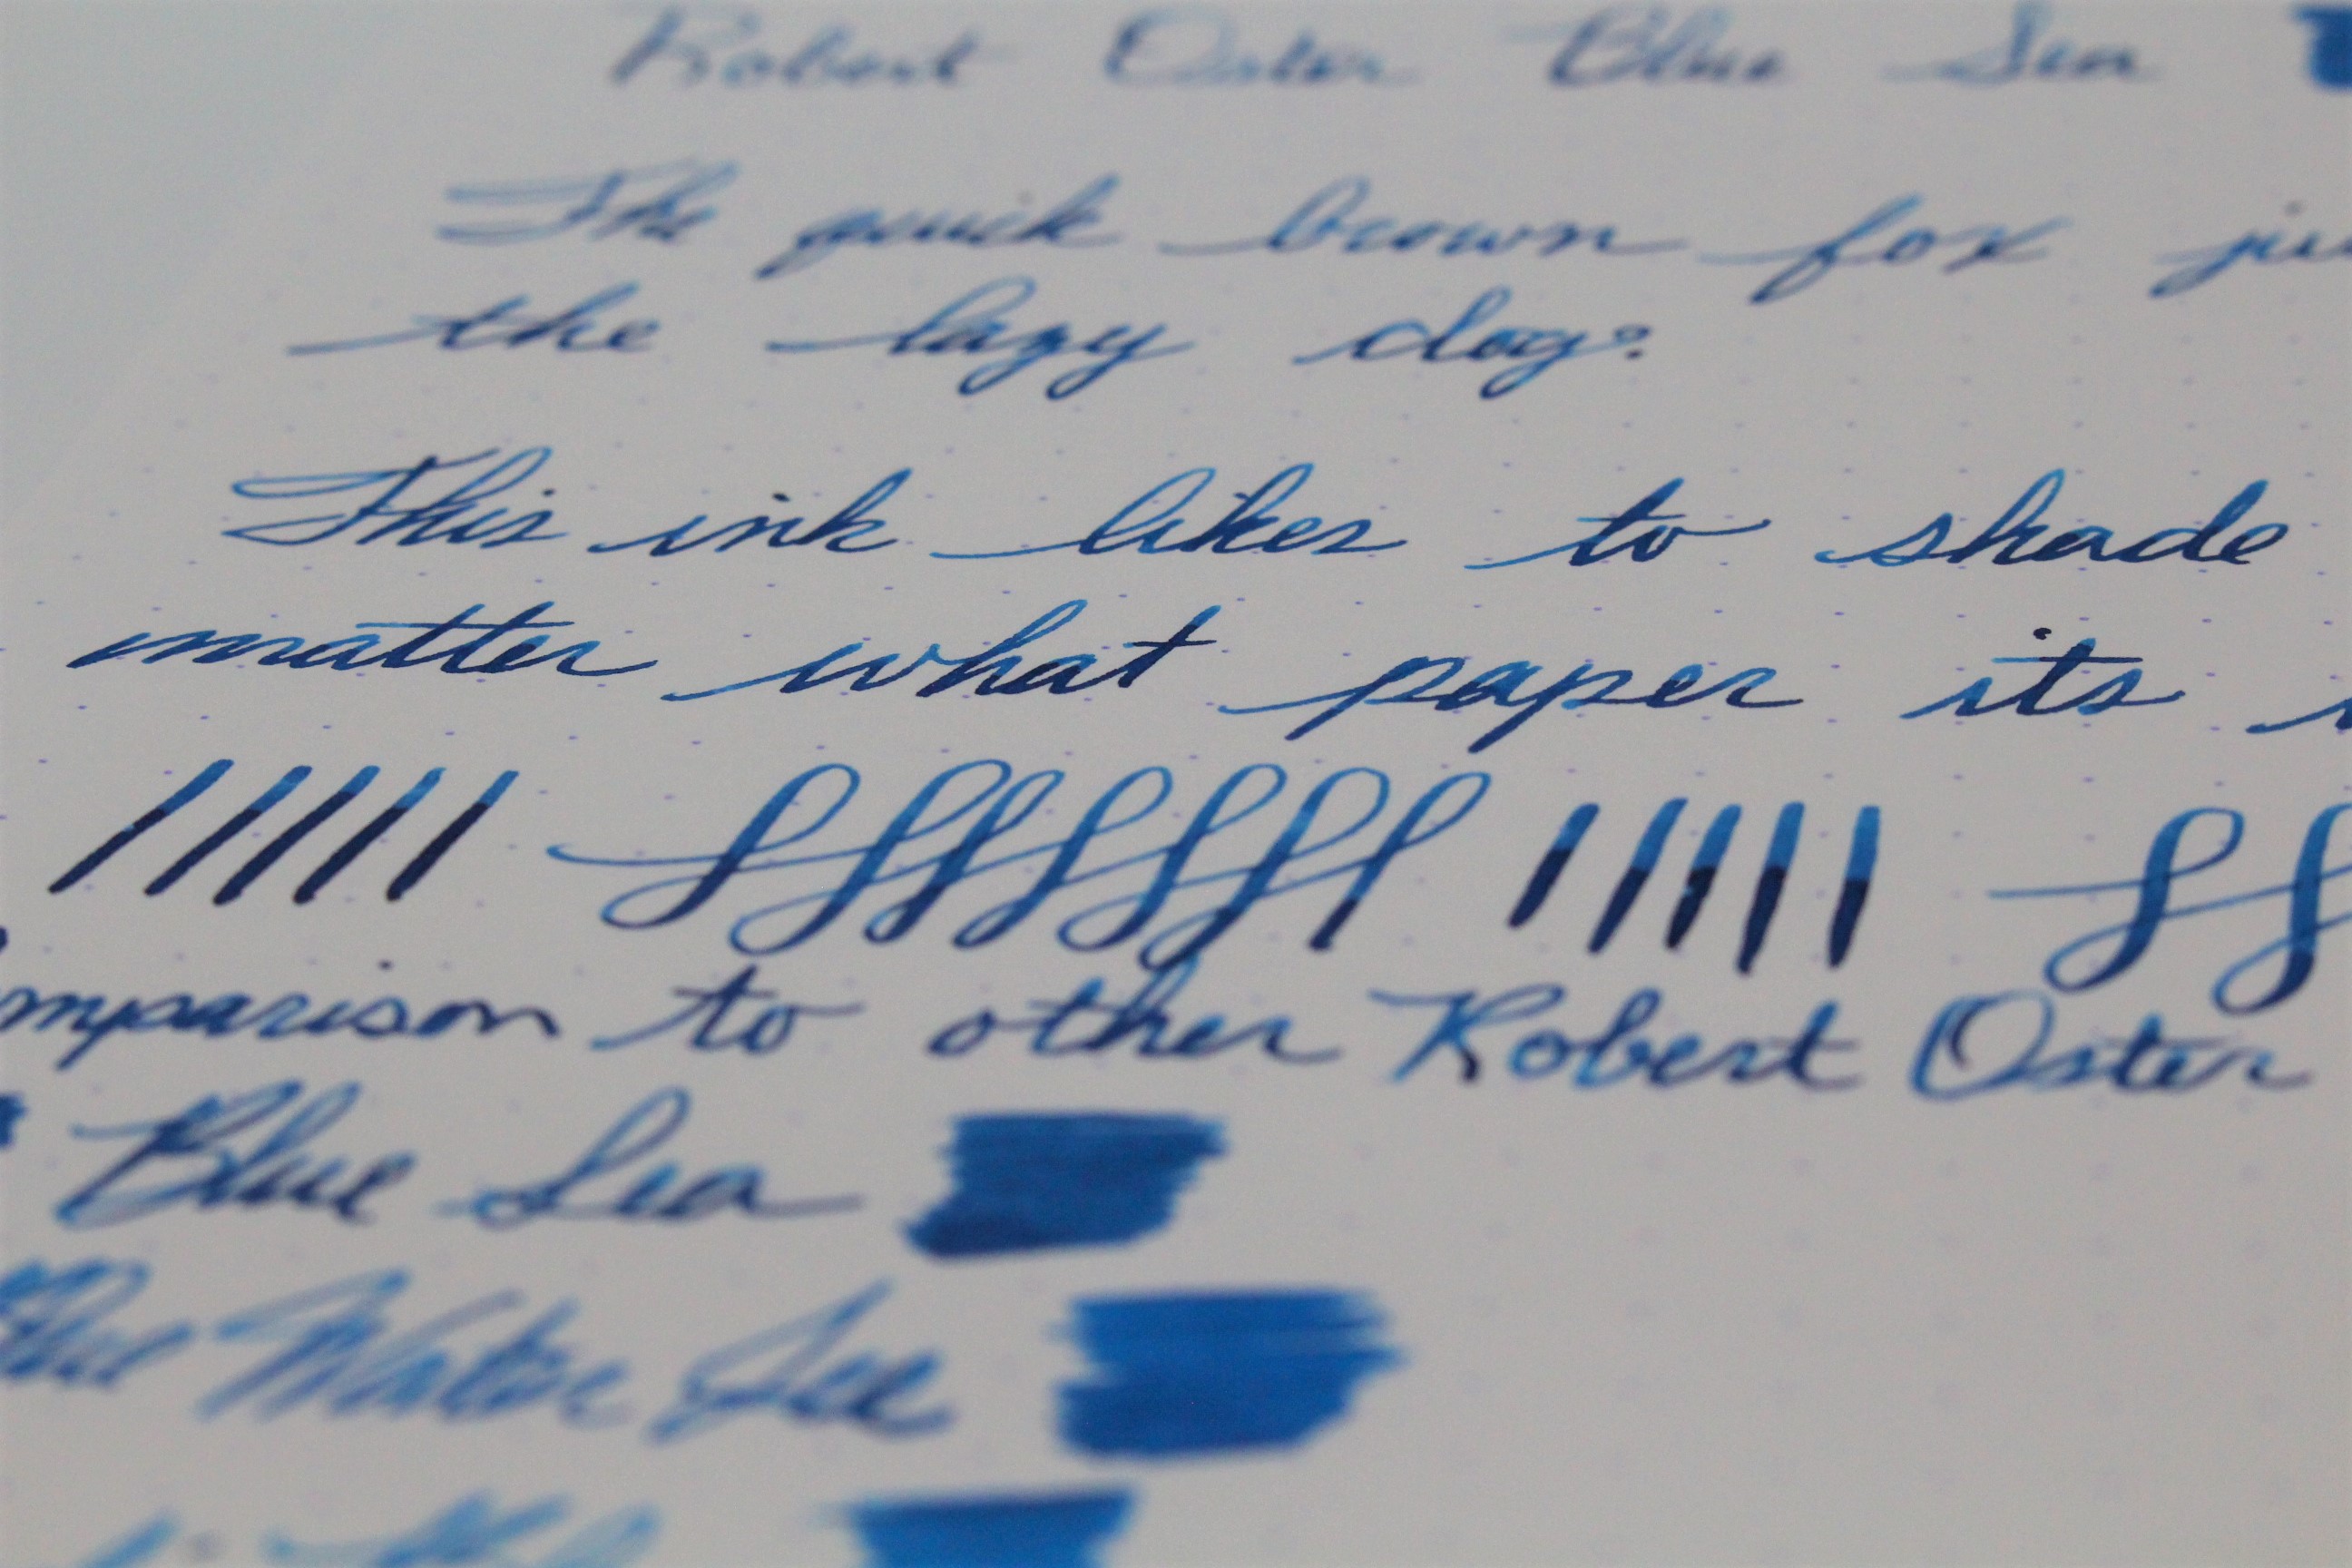 Robert Oster Blue Sea
The quick brown fox ju
the lazy dog.
This ink likes to shade
matter what paper its
mparison to other Robert Oster
Blue Sea
Blue Water Ice